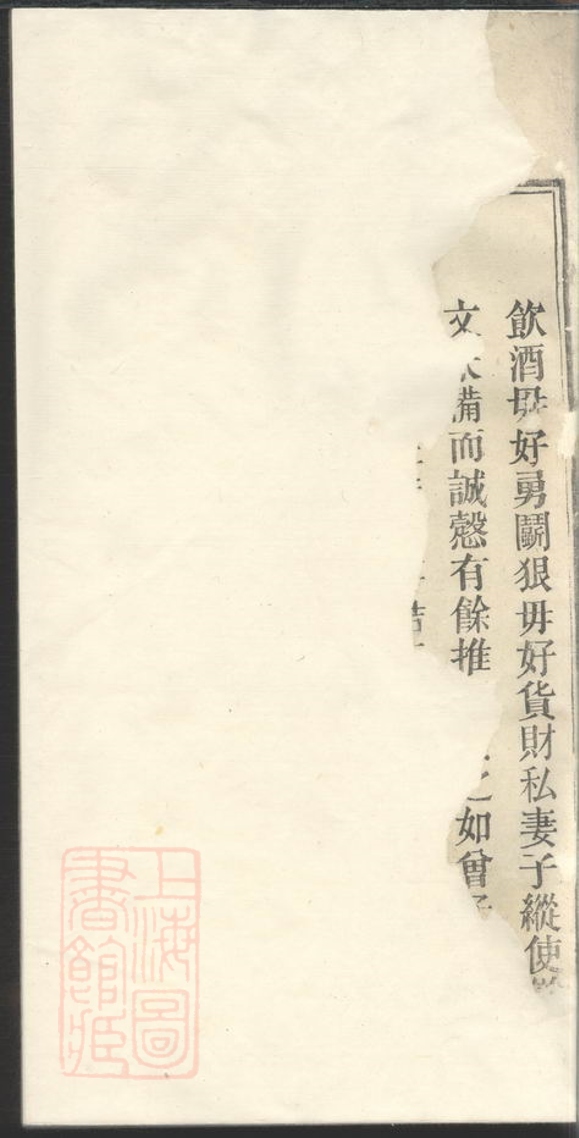 飲酒毋好勇鬭狠毋好貨財私妻子縱使
文 備而誠慤有餘推 之如曾子
上海圖
書館藏